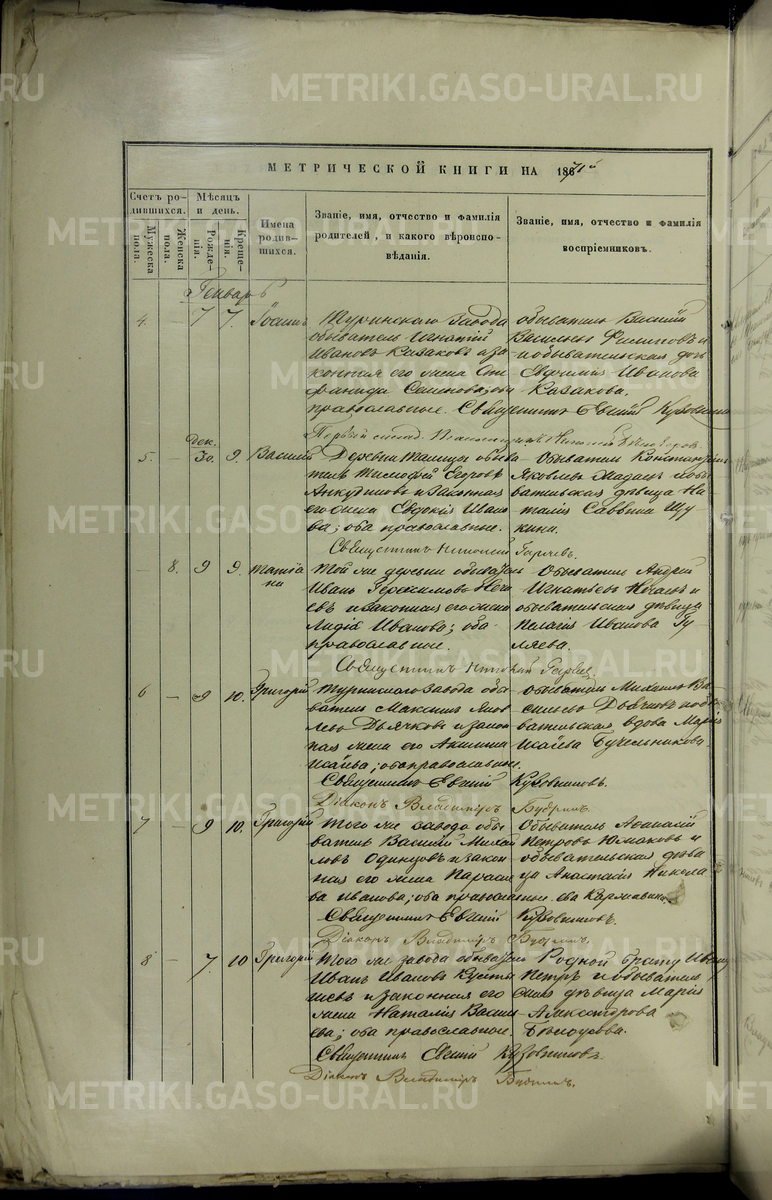 METRIKI.GASO-URAL.RU
МЕТРИЧЕСКОЙ КНИГИ НА 1871й
Счетъ родившихся. Мѣсяцъ и день.
Мужеска пола. Женска пола. Рожденія. Крещенія.
Имена родившихся.
Званіе, имя, отчество и фамилія родителей, и какого вѣроисповѣданія.
Званіе, имя, отчество и фамилія воспріемниковъ.
Генварь
4. — 7 7. Іоаннъ
Туринскаго завода
обыватель Игнатій
Ивановъ Казаковъ и за
конная его жена Сте
фанида Семенова; оба
православные.
обыватель Василій
Васильевъ Филиповъ и
обывательская дочь
Ивановa
Казакова.
Священникъ Евгеній Кузовниковъ
5. — Дек. 30. 9. Василій
Деревни обыва
тель Тимофей Егоровъ
и законная
его жена Евдокія Ива
ва; оба православные.
Обыватель Константинъ
Яковлевъ и обы
вательская дѣвица На
талія Саввина Щу
кина.
Священникъ Николай
— 8. 9 9. Татіа
на
Той же деревни обыватель
Иванъ Герасимовъ Нога
евъ и законная его жена
Лидія Иванова; оба
православные.
Обыватель Андрей
Игнатьевъ Ногаевъ и
обывательская дѣвица
Пелагія Иванова Гу
ляева.
Священникъ Николай
6 — 9 10. Григорій
Туринскаго завода обы
ватель Максимъ Яков
левъ Дьячковъ и закон
ная жена его Акилина
Исаева; оба православные.
Обыватель Михаилъ Ва
сильевъ Дьячковъ и обы
вательская вдова Марія
Исаева Бучельникова.
Священникъ Евгеній Кузовниковъ.
Діаконъ Владиміръ Будринъ.
7 — 9 10. Григорій
Того же завода обы
ватель Василій Михай
ловъ Одинцовъ и закон
ная его жена Параске
ва Иванова; оба православные.
Обыватель Афанасій
Петровъ Южаковъ и
обывательская дѣви
ца Анастасія Никола
ева
Священникъ Евгеній Кузовниковъ.
Діаконъ Владиміръ Будринъ.
8 — 7. 10 Григорій
Того же завода обыватель
Иванъ Ивановъ
и законная его
жена Наталія Василь
ева; оба православные.
Родной братъ
Петръ и обыватель
ская дѣвица Марія
Александрова
Бѣлоусова.
Священникъ Евгеній Кузовниковъ
Діаконъ Владиміръ Будринъ.